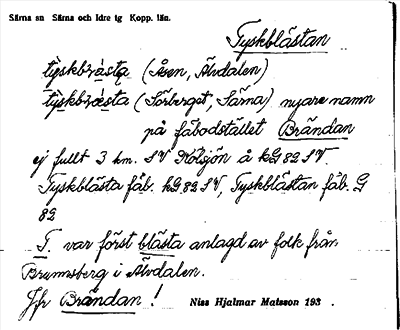 Särna sn Särna och Idre tg Kopp. län.
Tyskblästan
tyskblästa (Åsen, Älvdalen)
tyskblæsta (Sörberget, Särna) nyare namn
på fäbodstället Brändan
ej fullt 3 km. SV Kölsjön å kG 82 SV.
Tyskblästa fäb. kG 82 SV, Tyskblästan fäb. G
82
T. var först blästa anlagd av folk från
Brunnsberg i Älvdalen.
Jfr Brändan!
Niss Hjalmar Matsson 193 .